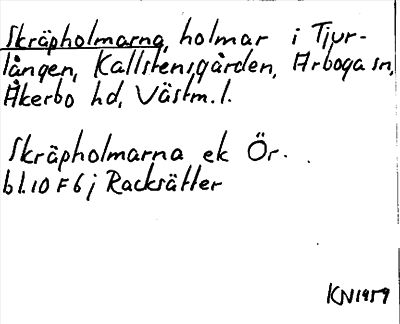 Skräpholmarna, holmar i Tjur-
lången, Kallstensgården, Arboga sn,
Åkerbo hd, Västm.l.
Skräpholmarna ek Ör.
bl.10 F6j Racksätter
KN1959